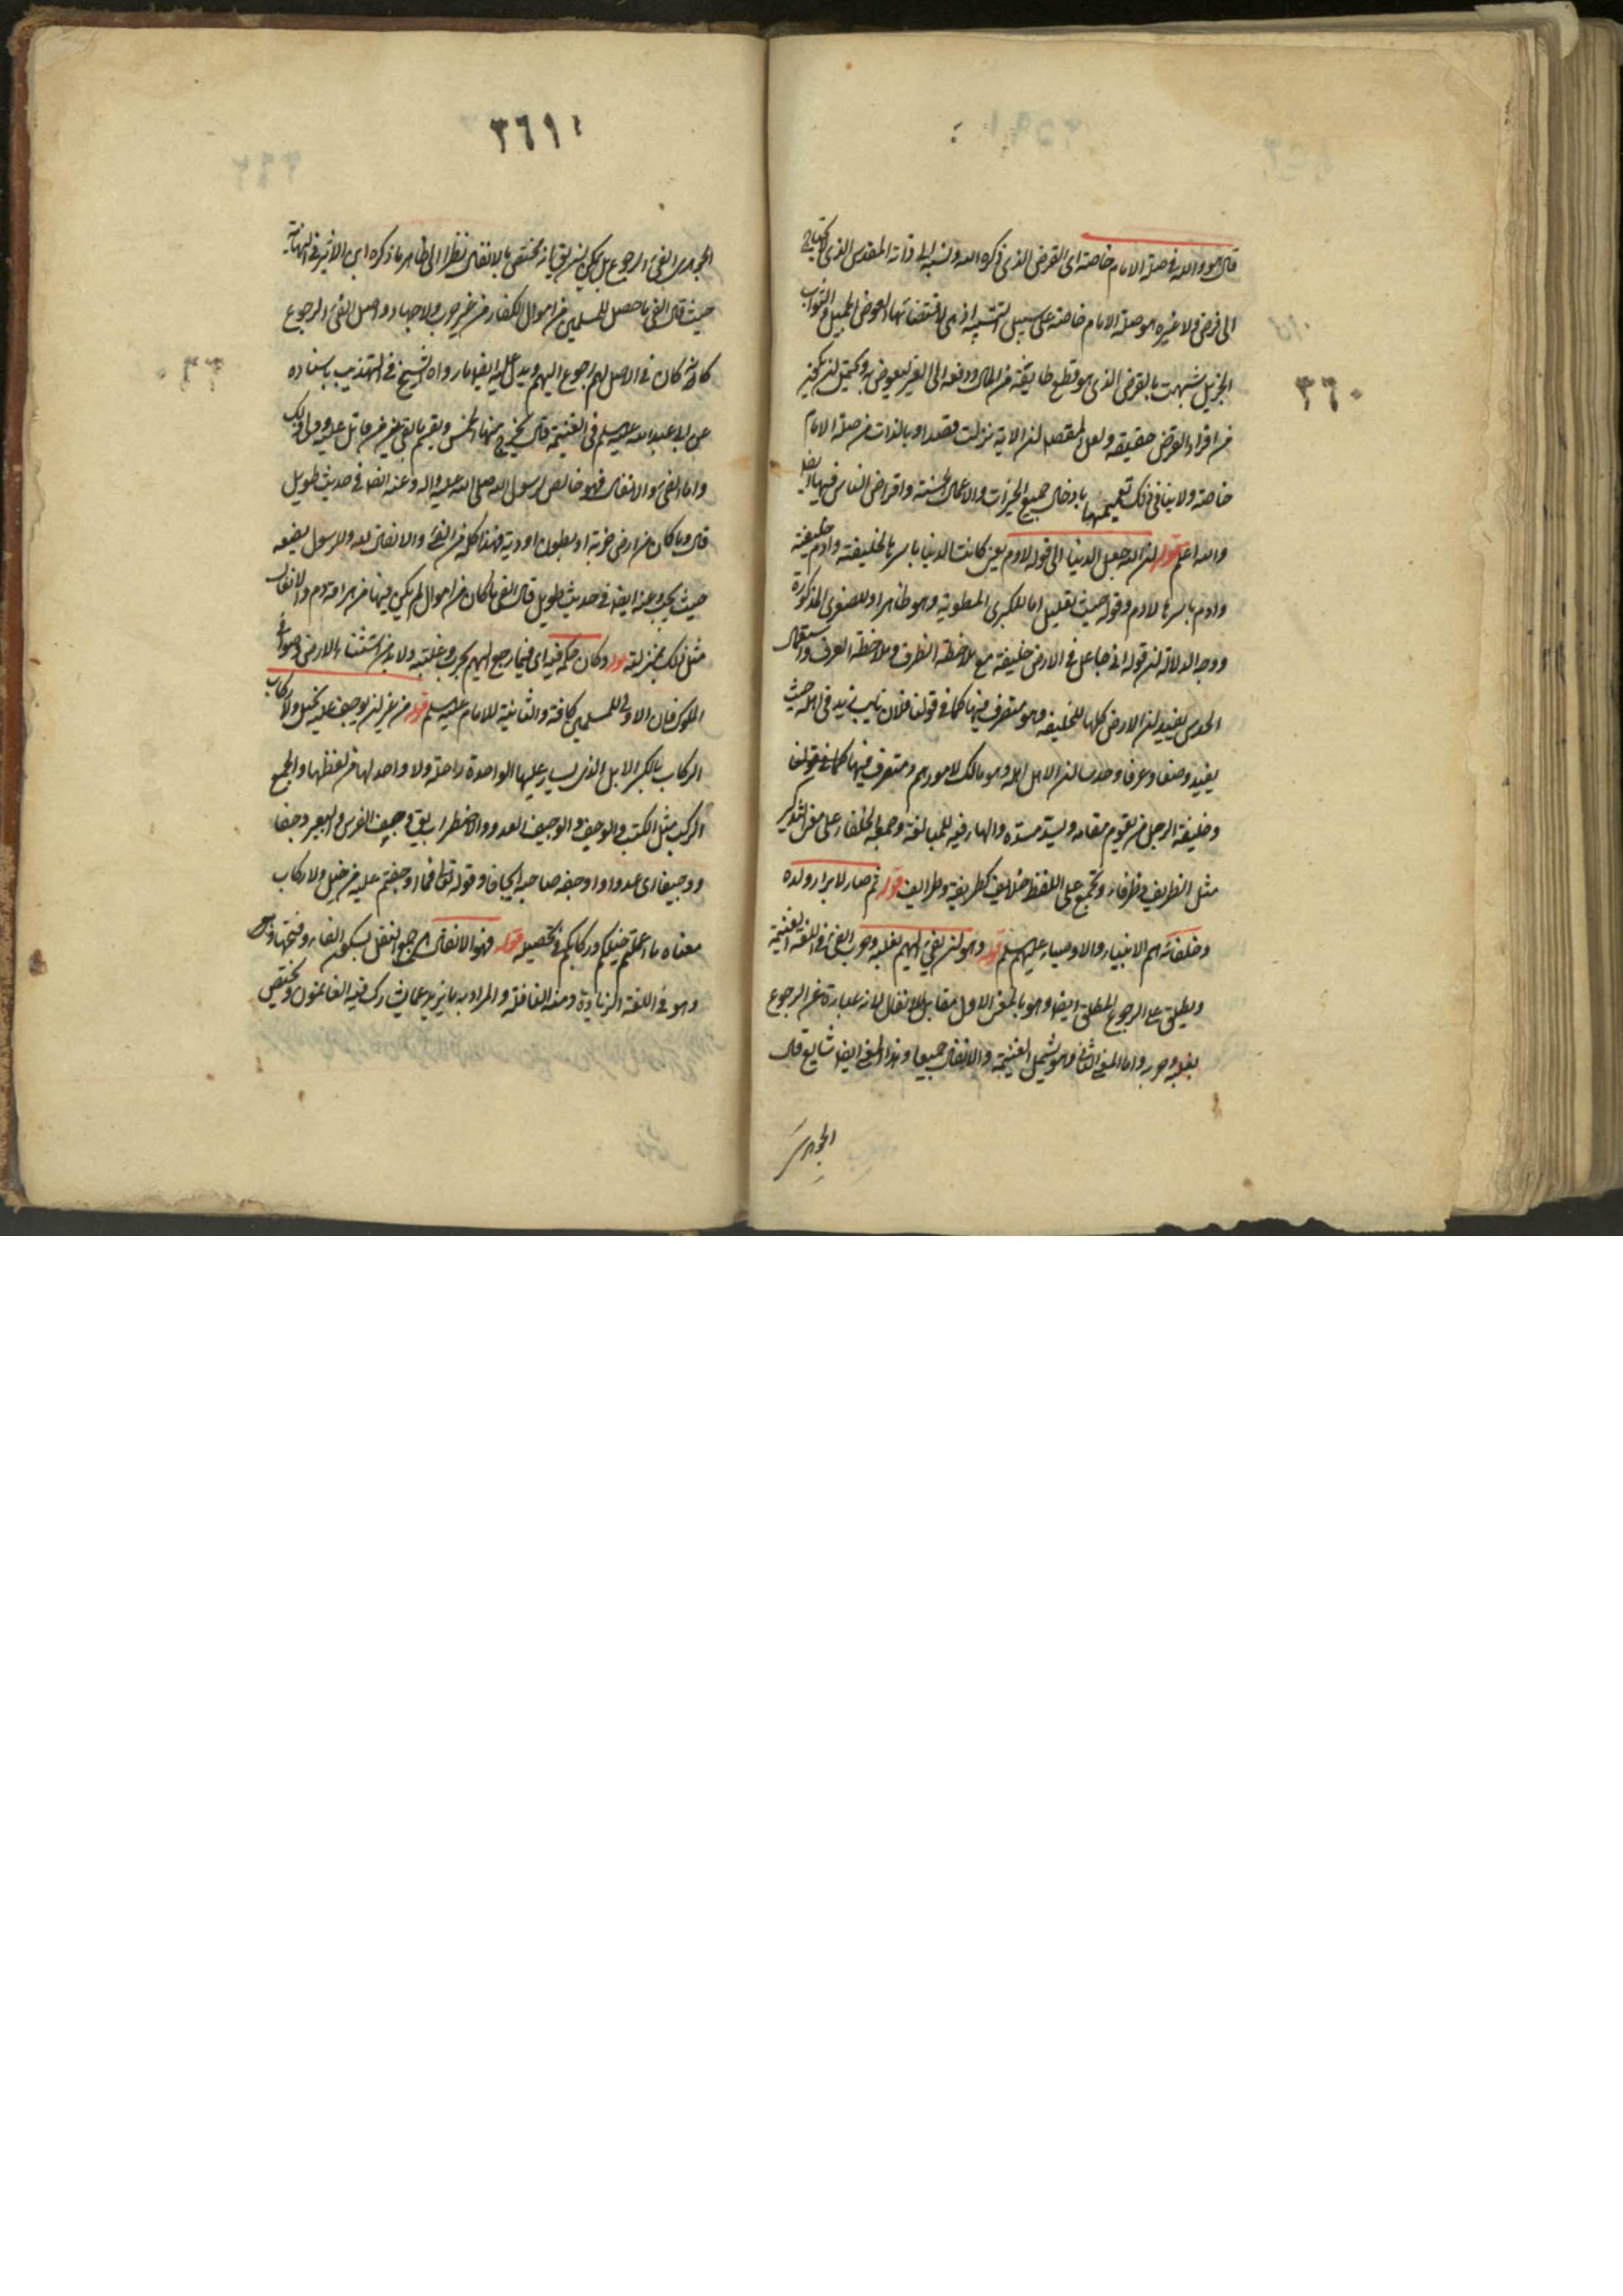 ٣٦٠
قال هو والله في صلة الامام خاصة اى القرض الذى ذكره الله ونسبه الى ذاته المقدس الذى لا يحتاج
الى قرض ولا غيره هو صلة الامام خاصة على سبيل التشبيه اذ هى لاقتضائها العوض الجميل والثواب
الجزيل شبهت بالقرض الذى هو قطع طايفة من المال ودفعه الى الغير ليعوض به ويحتمل ان يكون
من افراد القرض حقيقة ولعل المقصد ان الاية نزلت قصدا وبالذات في صلة الامام
خاصة ولا ينافى ذلك تعميمها بادخال جميع الخيرات والاعمال الحسنة واقراض الناس فيها ايضا
والله اعلم قوله ان الله جعل الدنيا الى قوله لادم يعنى كانت الدنيا باسرها لخليفته وادم خليفته
وادم باسرها لادم وقوله حيث تعليل اما للكبرى المطوية وهو ظاهر او للصغرى المذكورة
ووجه الدلالة ان قوله انى جاعل فى الارض خليفة مع ملاحظة الظرف وملاحظة العرف واستعمال
الحدس يفيد ان الارض كلها للخليفة وهو متصرف فيها كما فى قولنا فلان نايب زيد فى اهله حيث
يفيد وضعا وعرفا وحدسا ان الاهل اهله وهو مالك لامورهم ومتصرف فيها كما فى قولنا
وخليفة الرجل من يقوم مقامه ويسد مسده والهاء فيه للمبالغة وجمعه الخلفاء على معنى التذكير
مثل الظريف وظرفاء ويجمع على اللفظ خلايف كظريفة وظرايف قوله ثم صار لابرار ولده
وخلفائه هم الانبياء والاوصياء عليهم السلم قوله وهو ان يفئ اليهم بغلبة وحرب الفئ فى اللغة الغنيمة
ويطلق على الرجوع المطلق ايضا وهو بالمعنى الاول مقابل للانفال لانه عبارة عن الرجوع
بغلبة وحرب واما المعنى الثانى فهو يشمل الغنيمة والانفال جميعا وهذا المعنى ايضا شايع قال
الجوهرى
٣٦١
الجوهرى الفئ الرجوع بل يمكن ان يق انه مختص بالانفال نظرا الى ظاهر ما ذكره ابن الاثير فى النهاية
حيث قال الفئ ما حصل للمسلمين من اموال الكفار من غير حرب ولا جهاد واصل الفئ الرجوع
كانه كان فى الاصل لهم فرجع اليهم ويدل عليه ايضا ما رواه الشيخ فى التهذيب باسناده
عن ابى عبد الله عليه السلم فى الغنيمة قال يخرج منها الخمس ويقسم ما بقى بين من قاتل عليه وولى ذلك
واما الفئ والانفال فهو خالص لرسول الله صلى الله عليه واله وعنه ايضا فى حديث طويل
قال وما كان من ارض خربة او بطون اودية فهذا كله من الفئ والانفال لله وللرسول يضعه
حيث يحب وعنه ايضا فى حديث طويل قال الفئ ما كان من اموال لم يكن فيها هراقة دم والانفال
مثل ذلك بمنزلته قوله وكان حكمه فيه اى فيما رجع اليهم بحرب وغلبة ولا بد من استثناء الارض وصوافى
الملوك فان الاولى للمسلمين كافة والثانية للامام عليه السلم قوله من غير ان يوجف عليه بخيل ولا ركاب
الركاب بالكسر الابل الذى يسار عليها الواحدة راحلة ولا واحد لها من لفظها والجمع
الركب مثل الكتب والوجف والوجيف العدو والاضطراب يق وجف الفرس والبعير وجفا
ووجيفا اى عدوا واوجفه صاحبه ايجافا وقوله تعالى فما اوجفتم عليه من خيل ولا ركاب
معناه ما اعملتم خيلكم وركابكم فى تحصيله قوله فهو الانفال هى جمع النفل بسكون الفاء وفتحها
وهو فى اللغة الزيادة ومنه النافلة والمراد به ما يزيد عما يشارك فيه الغانمون ويختص